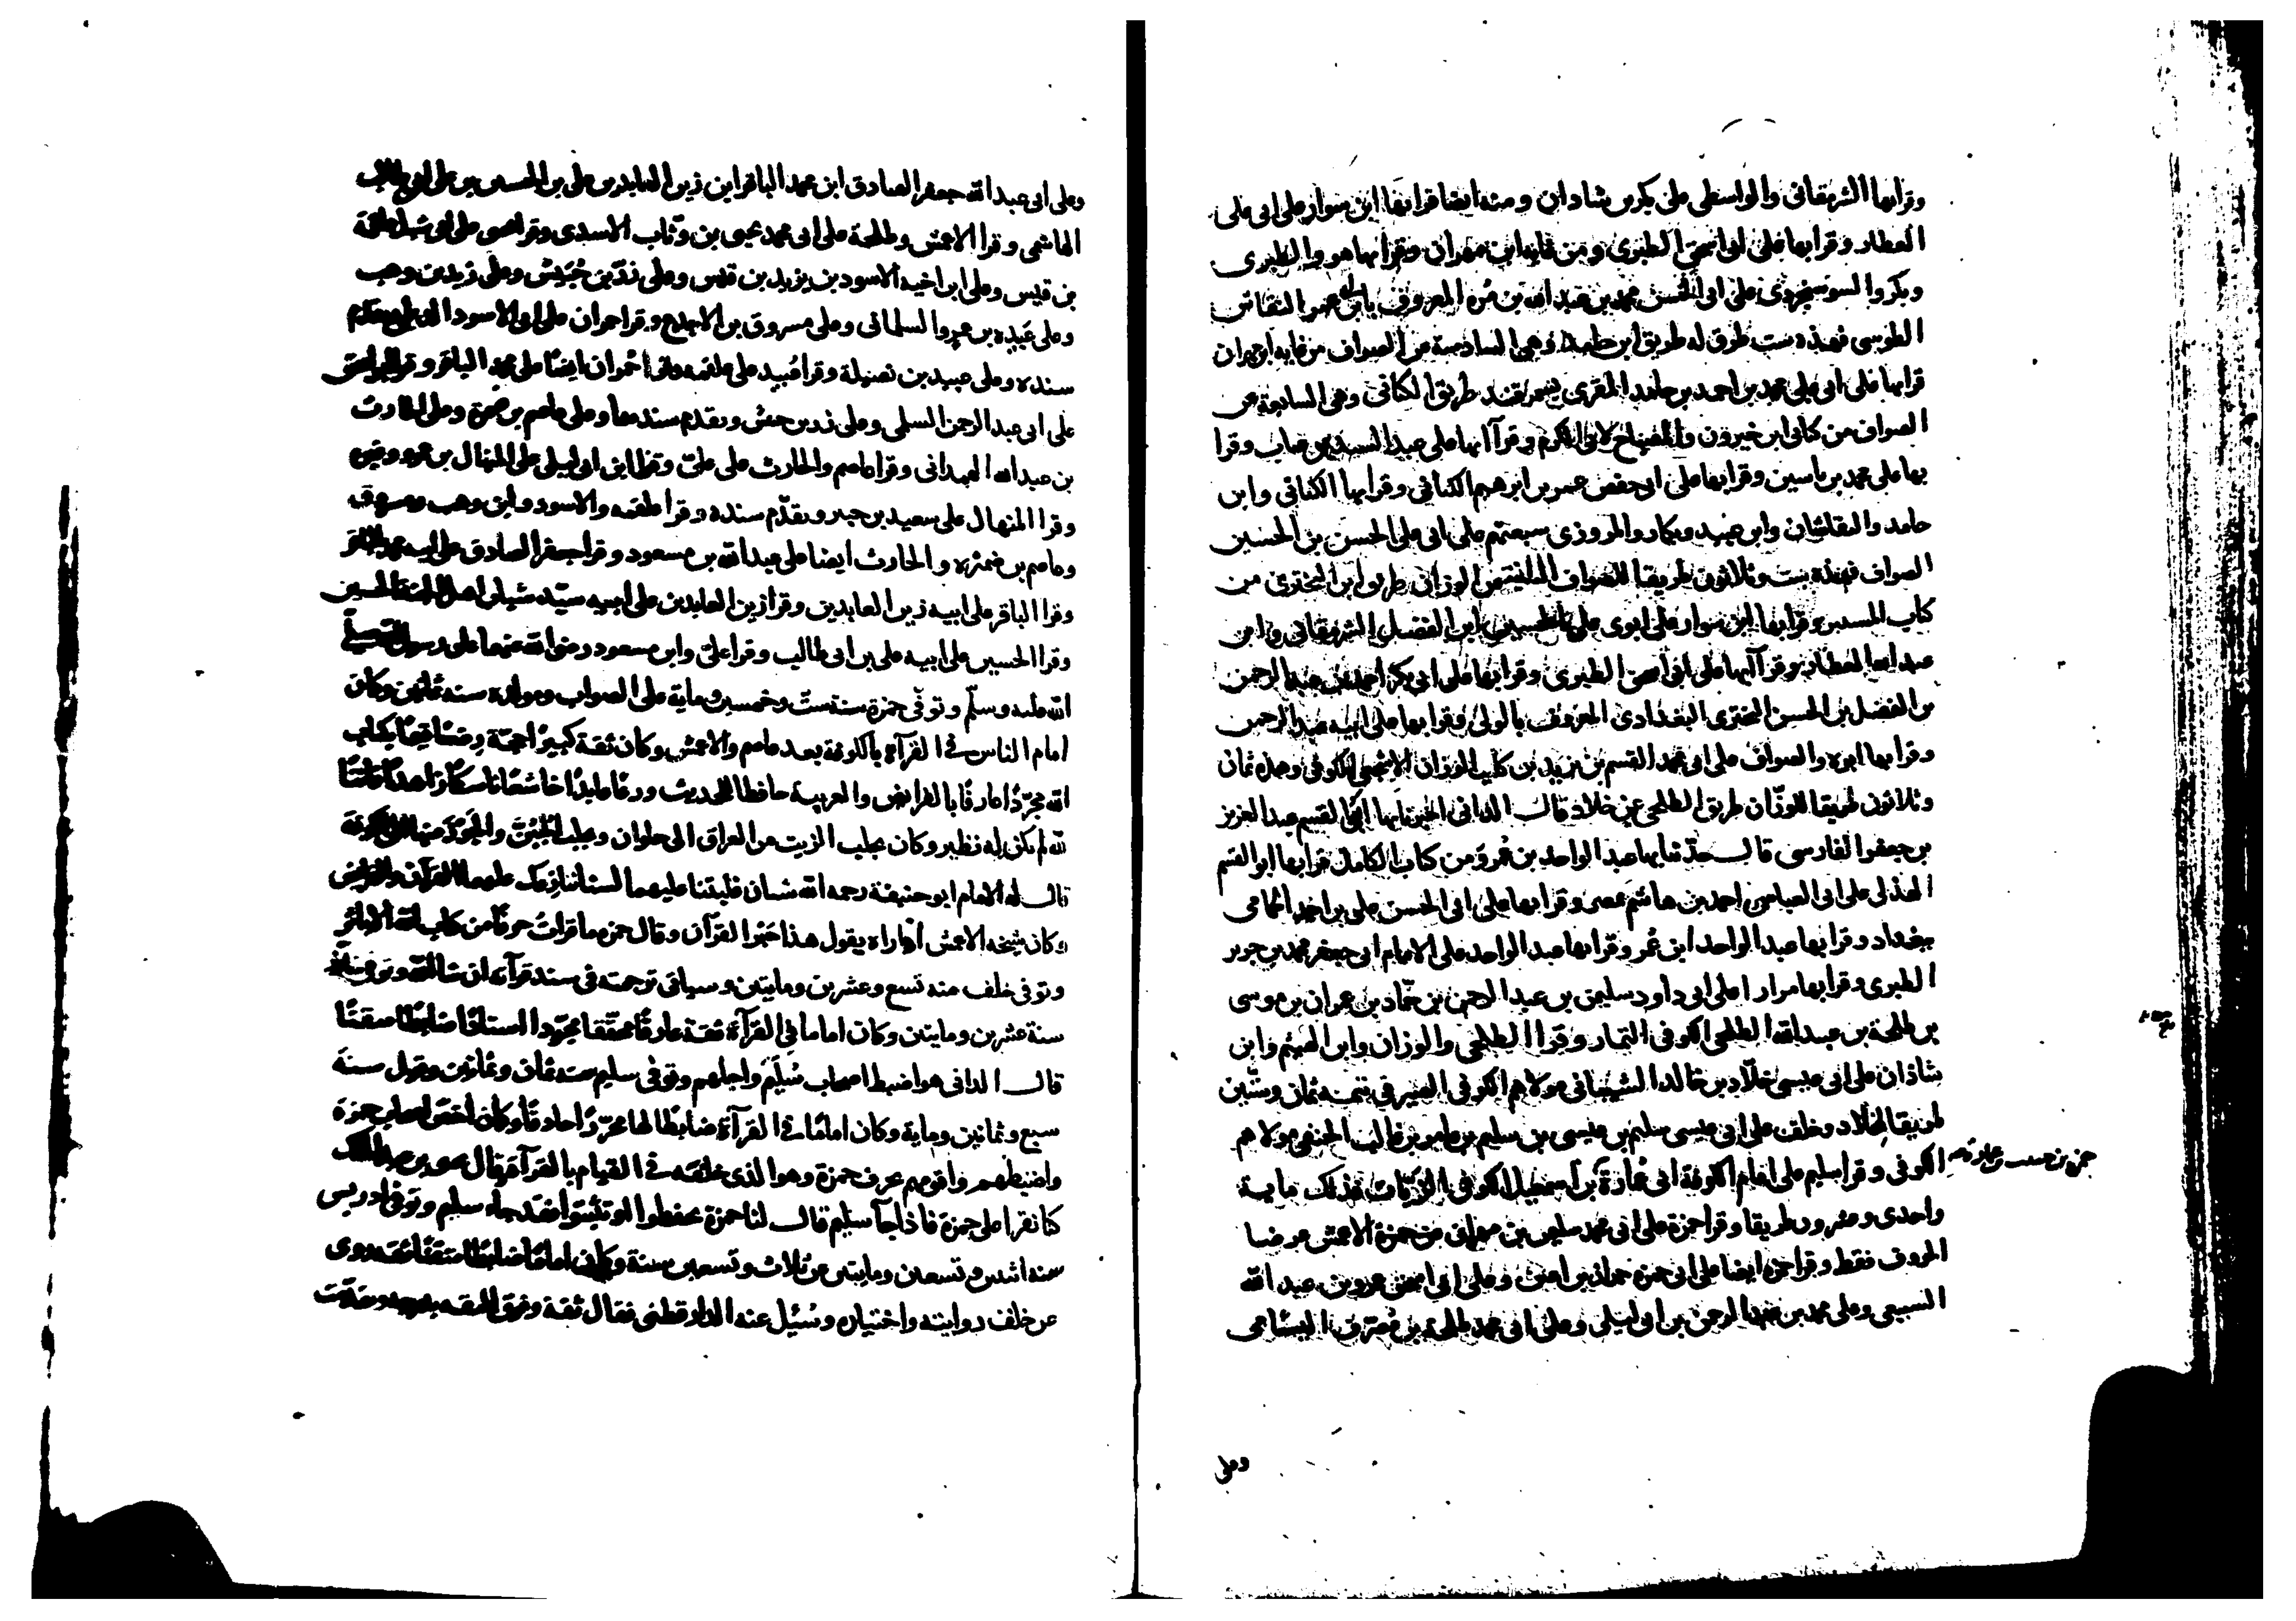 وقرا بها الشرمقاني والواسطي على بكر بن شاذان ومنه ايضا قرا بها ابن سوار على ابى على
العطار وقرا بها على ابى اسحق الطبرى ومن غاية ابن مهران وقرا بها هو والطبرى
وبكر والسوسنجردى على ابى الحسن محمد بن عبد الله بن مرة المعروف بابن ابى عمر النقاش
الطوسى فهذه ست طرق له طريق ابن حامد وهي السادسة عن الصواف من غاية ابن مهران
قرا بها على ابى على محمد بن احمد بن حامد المقرى بسمرقند طريق الكتاني وهي السابعة عن
الصواف من كتابى ابن خيرون والمصباح لابى الكرم وقرآ بها على عبد السيد بن عتاب وقرا
بها على محمد بن ياسين وقرا بها على ابى حفص عمر بن ابرهيم الكتاني وقرا بها الكتاني وابن
حامد والنقاشان وابن عبيد وبكار والمروزى سبعتهم على ابى على الحسن بن الحسين
الصواف فهذه ست وثلاثون طريقا للصواف عن الوزان طريق ابن البخترى من
كتاب المستنير قرا بها ابن سوار على ابوى على الحسن بن ابى الفضل الشرمقاني وابن
عبد الله العطار وقرآ بها على ابى اسحق الطبرى وقرا بها على ابى بكر احمد بن عبد الرحمن
بن الفضل بن الحسن البخترى البغدادى المعروف بالولى وقرا بها على ابيه عبد الرحمن
وقرا بها ابوه والصواف على ابى محمد القسم بن يزيد بن كليب الوزان الاشجعى الكوفى وهذه ثمان
وثلاثون طريقا للوزان طريق الطلحى عن خلاد قال الدانى اخبرنا بها ابو القسم عبد العزيز
بن جعفر الفارسى قال حدثنا بها عبد الواحد بن عمر ومن كتاب الكامل قرا بها ابو القسم
الهذلى على ابى العباس احمد بن هاشم بمصر وقرا بها على ابى الحسن على بن احمد الحمامى
ببغداد وقرا بها عبد الواحد ابن عمر وقرا بها عبد الواحد على الامام ابى جعفر محمد بن جرير
الطبرى وقرا بها مرارا على ابى داود سليمن بن عبد الرحمن بن حماد بن عمران بن موسى
بن طلحة بن عبيد الله الطلحى الكوفى التمار وقرا الطلحى والوزان وابن الهيثم وابن
شاذان على ابى عيسى خلاد بن خالد الشيبانى مولاهم الكوفى الصيرفى تتمه ثمان وستين
طريقا لخلاد وخلف على ابى عيسى سليم بن عيسى بن سليم بن عامر بن غالب الحنفى مولاهم
الكوفى وقرا سليم على امام الكوفة ابى عمارة بن اسمعيل الكوفى الزيات فذلك ماية
حمزة بن حبيب بن عمارة
واحدى وعشرون طريقا وقرا حمزة على ابى محمد سليمن بن مهران الاعمش عرضا
الحروف فقط وقرا حمزة ايضا على ابى حمزة حمران بن اعين وعلى ابى اسحق عمرو بن عبد الله
السبيعى وعلى محمد بن عبد الرحمن بن ابى ليلى وعلى ابى محمد طلحة بن مصرف اليامى
وعلى
وعلى ابى عبد الله جعفر الصادق ابن محمد الباقر ابن زين العابدين على بن الحسين بن على ابى طالب
الهاشمى وقرا الاعمش وطلحة على ابى محمد يحيى بن وثاب الاسدى وقرا يحيى على ابى شبل علقمة
بن قيس وعلى ابن اخيه الاسود بن يزيد بن قيس وعلى زر بن حبيش وعلى زيد بن وهب
وعلى عبيده بن عمرو السلمانى وعلى مسروق بن الاجدع وقرا حمران على ابى الاسود الديلى وتقدم
سنده وعلى عبيد بن نضيلة وقرا عبيد على علقمه وقرا حمران ايضا على محمد الباقر وقرا ابو اسحق
على ابى عبد الرحمن السلمى وعلى زر بن حبيش وتقدم سندهما وعلى عاصم بن ضمرة وعلى الحارث
بن عبد الله الهمدانى وقرا عاصم والحارث على على وقرا ابن ابى ليلى على المنهال بن عمرو وغيره
وقرا المنهال على سعيد بن جبير وتقدم سنده وقرا علقمه والاسود وابن وهب ومسروق
وعاصم بن ضمره والحارث ايضا على عبد الله بن مسعود وقرا جعفر الصادق على ابيه محمد الباقر
وقرا الباقر على ابيه زين العابدين وقرا زين العابدين على ابيه سيد شباب اهل الجنة الحسين
وقرا الحسين على ابيه على بن ابى طالب وقرا على وابن مسعود رضى الله عنهما على رسول الله صلى
الله عليه وسلم وتوفى حمزة سنة ست وخمسين وماية على الصواب ومولده سنه ثمانين وكان
امام الناس فى القراءة بالكوفة بعد عاصم والاعمش وكان ثقة كبيرا حجة رضيا قيما بكتاب
الله مجودا عارفا بالفرايض والعربية حافظا للحديث ورعا عابدا خاشعا ناسكا زاهدا قانتا
لله لم يكن له نظير وكان يجلب الزيت من العراق الى حلوان ويجلب الجبن والجوز منها الى الكوفة
قال له الامام ابو حنيفة رحمه الله شيان غلبتنا عليهما لسنا ننازعك عليهما القرآن والفرايض
وكان شيخه الاعمش اذا راه يقول هذا حبر القرآن وقال حمزه ما قرات حرفا من كتاب الله الا باثر
وتوفى خلف سنه تسع وعشرين ومايتين وسياتى ترجمته فى سند قراءته ان شا الله وتوفى خلاد
سنة عشرين ومايتين وكان اماما فى القراءة ثقة عارفا محققا مجودا استاذا ضابطا متقنا
قال الدانى هو اضبط اصحاب سليم واجلهم وتوفى سليم سنه ثمان وثمانين وقيل سنة
سبع وثمانين وماية وكان اماما فى القراءة ضابطا لها محررا حاذقا وكان اخص اصحاب حمزة
واضبطهم واقومهم بحرف حمزة وهو الذى خلفه فى القيام بالقرآة قال يحيى بن عبد الملك
كنا نقرا على حمزة فاذا جآ سليم قال لنا حمزة تحفظوا او تثبتوا فقد جاء سليم وتوفى ادريس
سنه اثنين وتسعين ومايتين عن ثلاث وتسعين سنة وكان اماما ضابطا متقنا ثقه روى
عن خلف روايته واختياره وسئل عنه الدارقطنى فقال ثقة وفوق الثقه بدرجه